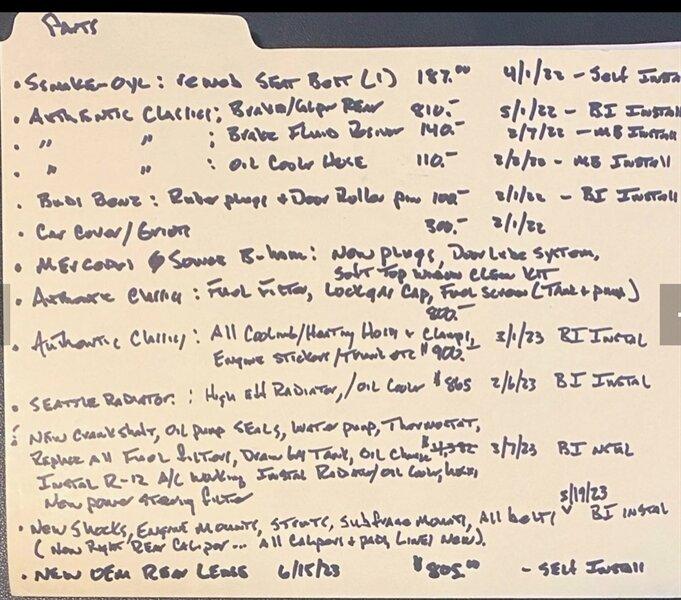 Parts
• : reweb Seat Belt (1) 187.00 4/1/22 - Self Instal
• Authentic Classics; Brake/Caliper Rear 810.- 5/1/22 - BI Install
• " " ; Brake Fluid 140.- 2/7/22 - MB Install
• " " : Oil Cooler Hose 110.- MB Install
• Budi Benz: Rubber plugs + Door Roller pin 100.- 2/1/22 - BI Install
• Car Cover/ 300.- 2/1/22
• Source B-ham: New plugs, Door Lube System,
Soft Top Window Clean Kit
• Authentic Classics: Fuel Filter, Lock gas Cap, Fuel Screen (Tank + pump)
800.-
• Authentic Classics: All Cooling/Heating Hoses + Clamps, 3/1/23 BI Instal
Engine Stickers/Trunk etc $900.-
• Seattle Radiator: High eff Radiator,/Oil Cooler $865 2/6/23 BI Instal
• New Crankshaft, Oil pump Seals, Water pump, Thermostat,
Replace All Fuel filters, Drain Gas Tank, Oil Change $4,392 3/7/23 BI nstal
Instal R-12 A/C Working Instal Radiator/oil Cooler, hoses,
New power steering filter
• New Shocks, Engine Mounts, Struts, Subframe Mounts, All bolts 5/19/23 BI Instal
(New Right Rear Caliper... All Calipers + pads, Lines New).
• New OEM Rear Lense 6/15/23 $805.00 - Self Install